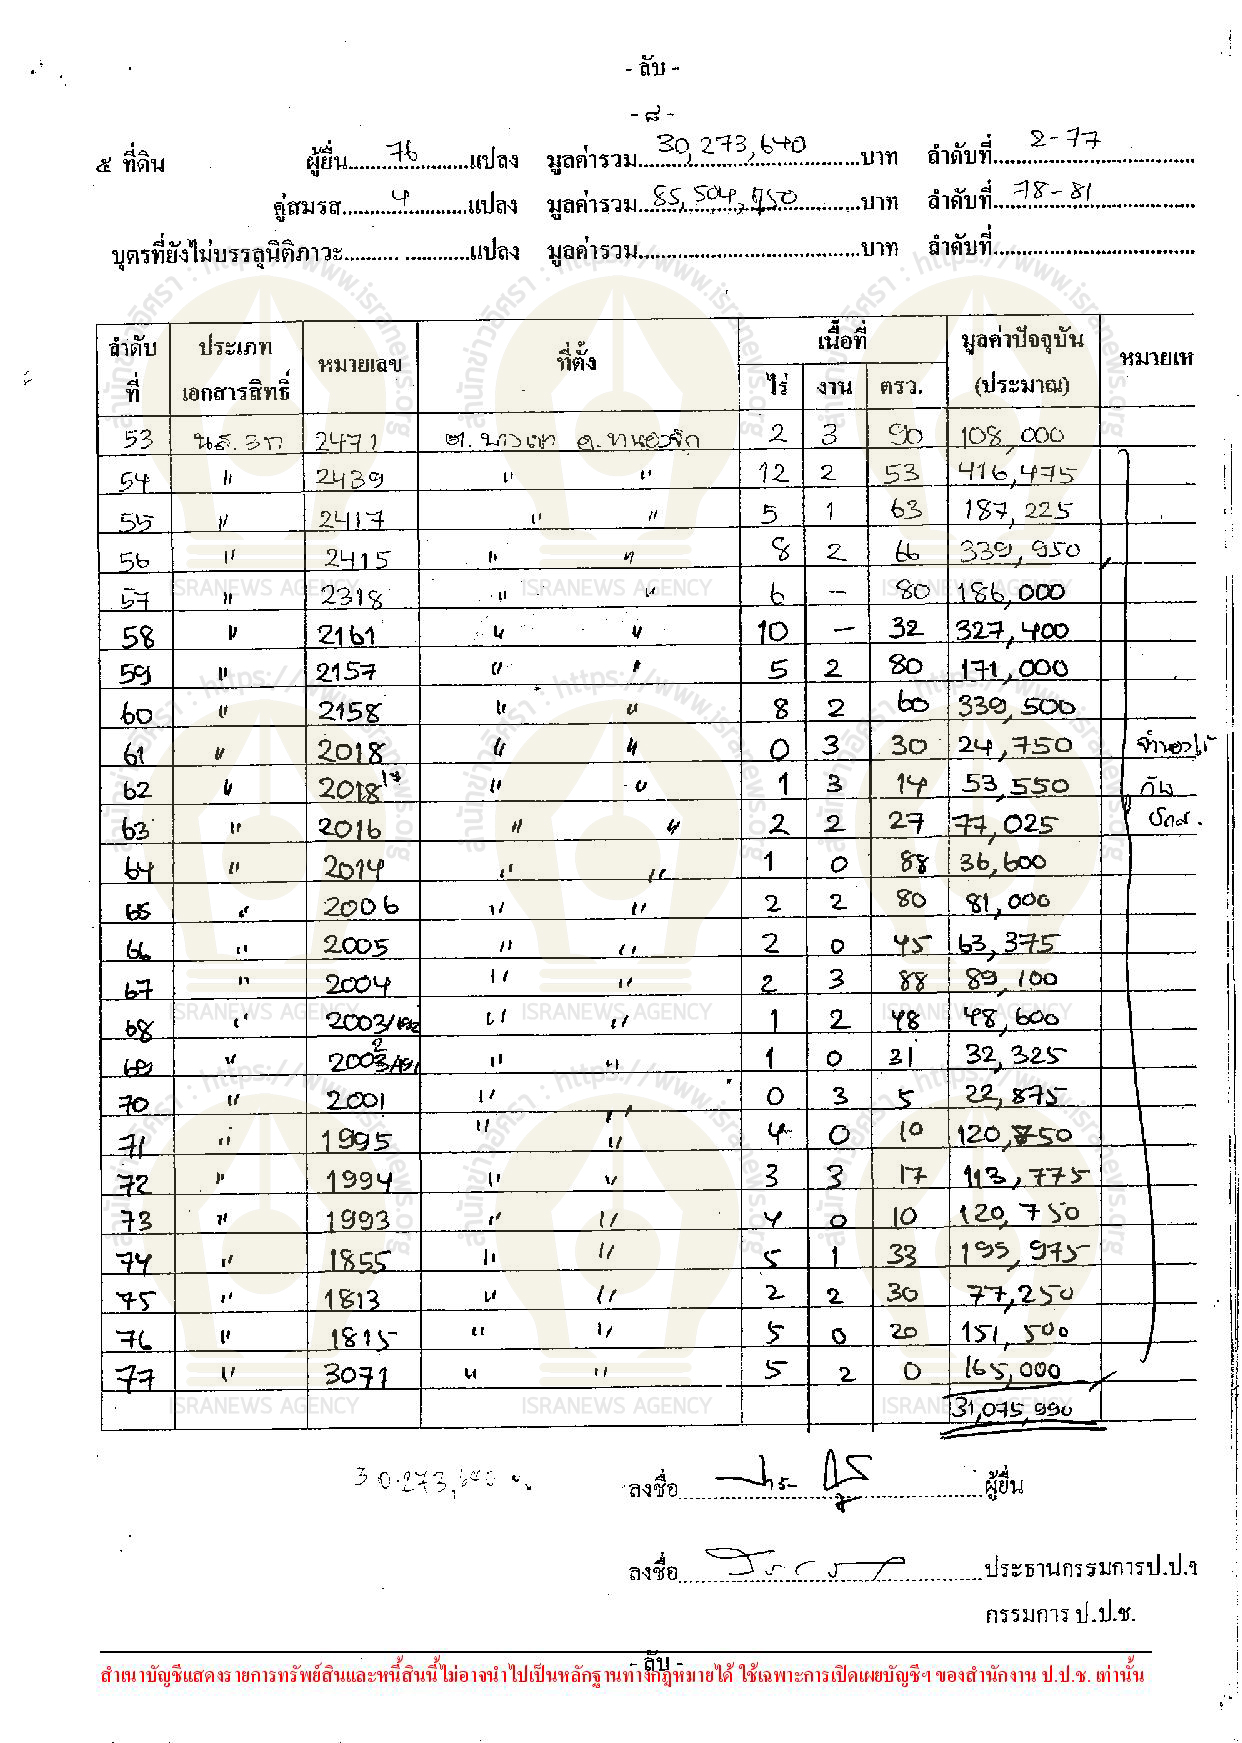 - ลับ -
- ๘ -
๕ ที่ดิน ผู้ยื่น 76 แปลง มูลค่ารวม 30,273,640 บาท ลำดับที่ 2-77
คู่สมรส 4 แปลง มูลค่ารวม 55,504,750 บาท ลำดับที่ 78-81
บุตรที่ยังไม่บรรลุนิติภาวะ แปลง มูลค่ารวม บาท ลำดับที่
ลำดับที่ ประเภทเอกสารสิทธิ์ หมายเลข ที่ตั้ง เนื้อที่ มูลค่าปัจจุบัน (ประมาณ) หมายเห
ไร่ งาน ตรว.
53 นส.3ก 2471 2 3 90 108,000
54 " 2439 " " 12 2 53 416,475
55 " 2417 " " 5 1 63 187,225
56 " 2415 " " 8 2 66 339,950
57 " 2318 " " 6 - 80 186,000
58 " 2161 " " 10 - 32 327,400
59 " 2157 " " 5 2 80 171,000
60 " 2158 " " 8 2 60 339,500
61 " 2018 " " 0 3 30 24,750
62 " 2018 " " 1 3 14 53,550 กับ
63 " 2016 " " 2 2 27 77,025
64 " 2014 " " 1 0 88 36,600
65 " 2006 " " 2 2 80 81,000
66 " 2005 " " 2 0 45 63,375
67 " 2004 " " 2 3 88 89,100
68 " 2003/ " " 1 2 48 48,600
69 " " " 1 0 31 32,325
70 " 2001 " " 0 3 5 22,875
71 " 1995 " " 4 0 10 120,750
72 " 1994 " " 3 3 17 113,775
73 " 1993 " " 4 0 10 120,750
74 " 1855 " " 5 1 33 195,975
75 " 1813 " " 2 2 30 77,250
76 " 1815 " " 5 0 20 151,500
77 " 3071 " " 5 2 0 165,000
31,075,990
30,273,640
ลงชื่อ ผู้ยื่น
ลงชื่อ ประธานกรรมการป.ป.ช
กรรมการ ป.ป.ช.
- ลับ -
สำเนาบัญชีแสดงรายการทรัพย์สินและหนี้สินนี้ไม่อาจนำไปเป็นหลักฐานทางกฎหมายได้ ใช้เฉพาะการเปิดเผยบัญชีฯ ของสำนักงาน ป.ป.ช. เท่านั้น
สำนักข่าวอิศรา : https://www.isranews.org
ISRANEWS AGENCY